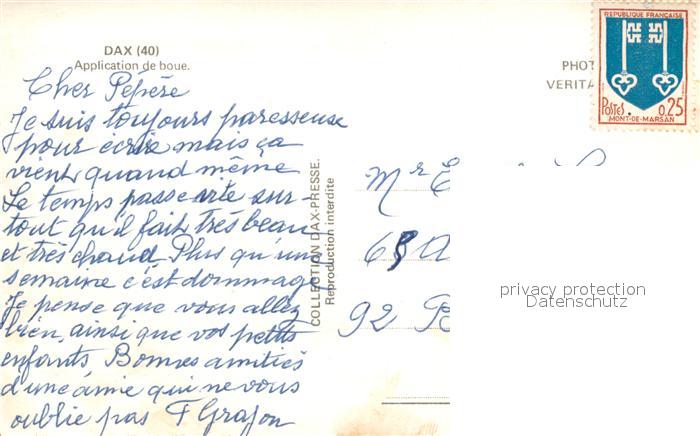 DAX (40)
Application de boue.
Cher Pépère
Je suis toujours paresseuse
pour écrire mais ça
vient quand même
Le temps passe vite sur-
tout qu'il fait très beau
et très chaud Plus qu'une
semaine c'est dommage
Je pense que vous allez
bien, ainsi que vos petits
enfants. Bonnes amitiés
d'une amie qui ne vous
oublie pas F
COLLECTION DAX-PRESSE.
Reproduction interdite
PHOT
VERITA
REPUBLIQUE FRANÇAISE
POSTES
0.25
MONT-DE-MARSAN
Mr
92
privacy protection
Datenschutz